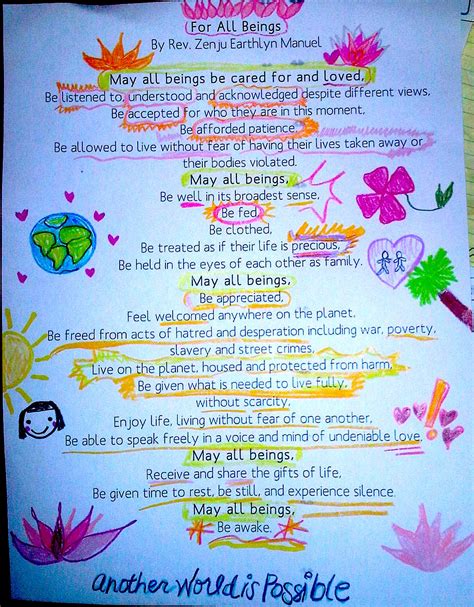 For All Beings
By Rev. Zenju Earthlyn Manuel
May all beings be cared for and loved,
Be listened to, understood and acknowledged despite different views,
Be accepted for who they are in this moment,
Be afforded patience,
Be allowed to live without fear of having their lives taken away or
their bodies violated.
May all beings,
Be well in its broadest sense,
Be fed,
Be clothed,
Be treated as if their life is precious,
Be held in the eyes of each other as family.
May all beings,
Be appreciated,
Feel welcomed anywhere on the planet,
Be freed from acts of hatred and desperation including war, poverty,
slavery and street crimes,
Live on the planet, housed and protected from harm,
Be given what is needed to live fully,
without scarcity,
Enjoy life, living without fear of one another,
Be able to speak freely in a voice and mind of undeniable love.
May all beings,
Receive and share the gifts of life,
Be given time to rest, be still, and experience silence.
May all beings,
Be awake.
another World is Possible